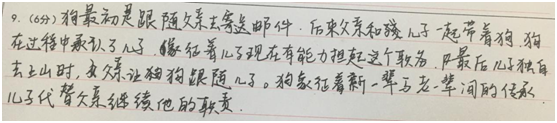 9. (6分) 狗最初是跟随父亲去寄送邮件. 后来父亲和孩儿子一起带着狗. 狗
在过程中承认了儿子. 象征着儿子现在有能力担起这个职务. 最后儿子独自
去上山时, 父亲让狗狗跟随儿子. 狗象征着新一辈与老一辈间的传承.
儿子代替父亲继续他的职责.